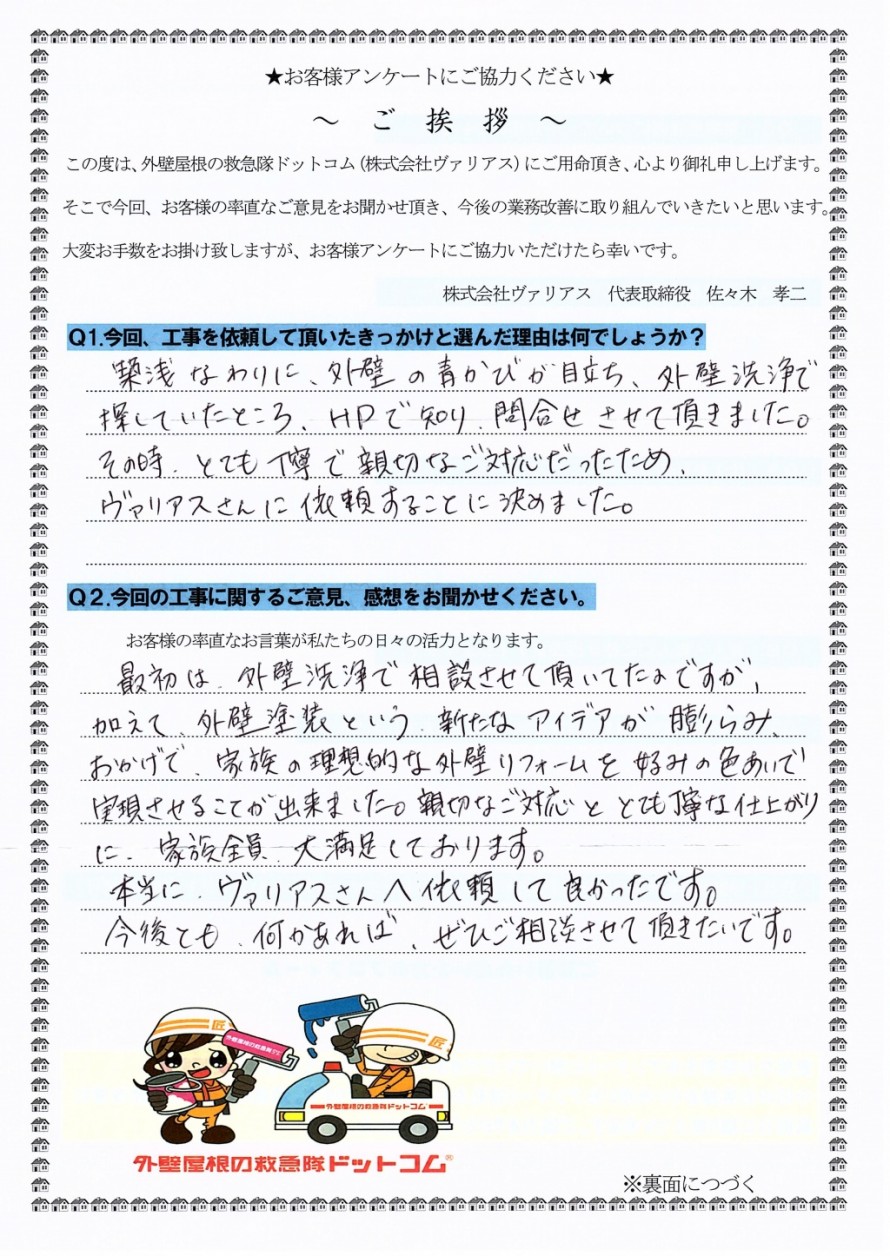 ★お客様アンケートにご協力ください★
～ ご 挨 拶 ～
この度は、外壁屋根の救急隊ドットコム(株式会社ヴァリアス)にご用命頂き、心より御礼申し上げます。
そこで今回、お客様の率直なご意見をお聞かせ頂き、今後の業務改善に取り組んでいきたいと思います。
大変お手数をお掛け致しますが、お客様アンケートにご協力いただけたら幸いです。
株式会社ヴァリアス 代表取締役 佐々木 孝二
Q1.今回、工事を依頼して頂いたきっかけと選んだ理由は何でしょうか？
築浅なわりに、外壁の青かびが目立ち、外壁洗浄で
探していたところ、HPで知り、問合せさせて頂きました。
その時、とても丁寧で親切なご対応だったため、
ヴァリアスさんに依頼することに決めました。
Q2.今回の工事に関するご意見、感想をお聞かせください。
お客様の率直なお言葉が私たちの日々の活力となります。
最初は、外壁洗浄で相談させて頂いてたのですが、
加えて、外壁塗装という、新たなアイデアが膨らみ、
おかげで、家族の理想的な外壁リフォームを好みの色あいで
実現させることが出来ました。親切なご対応ととても丁寧な仕上がり
に、家族全員、大満足しております。
本当に、ヴァリアスさんへ依頼して良かったです。
今後とも、何かあれば、ぜひご相談させて頂きたいです。
匠
外壁屋根の救急隊
匠
外壁屋根の救急隊ドットコム
外壁屋根の救急隊ドットコム®
※裏面につづく